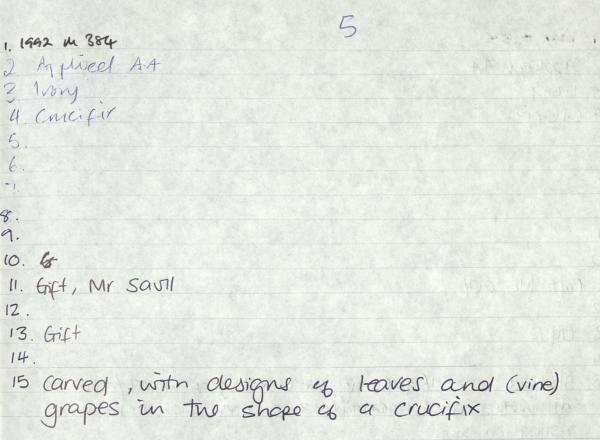 5
1. 1992 M 384
2 Applied AA
3 Ivory
4 Crucifix
5.
6.
7
8.
9.
10. G
11. Gift, Mr Savill
12.
13. Gift
14.
15 Carved, with designs of leaves and (vine)
grapes in the shape of a crucifix